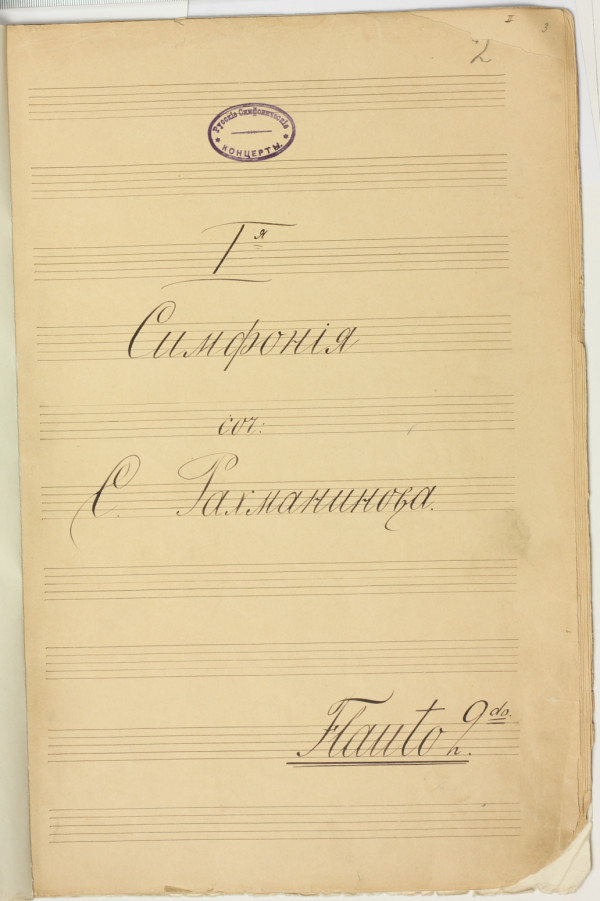 II 3
2
Русскіе Симфоническіе
КОНЦЕРТЫ.
Iя
Симфонія
соч:
С. Рахманинова.
Flauto 2do.